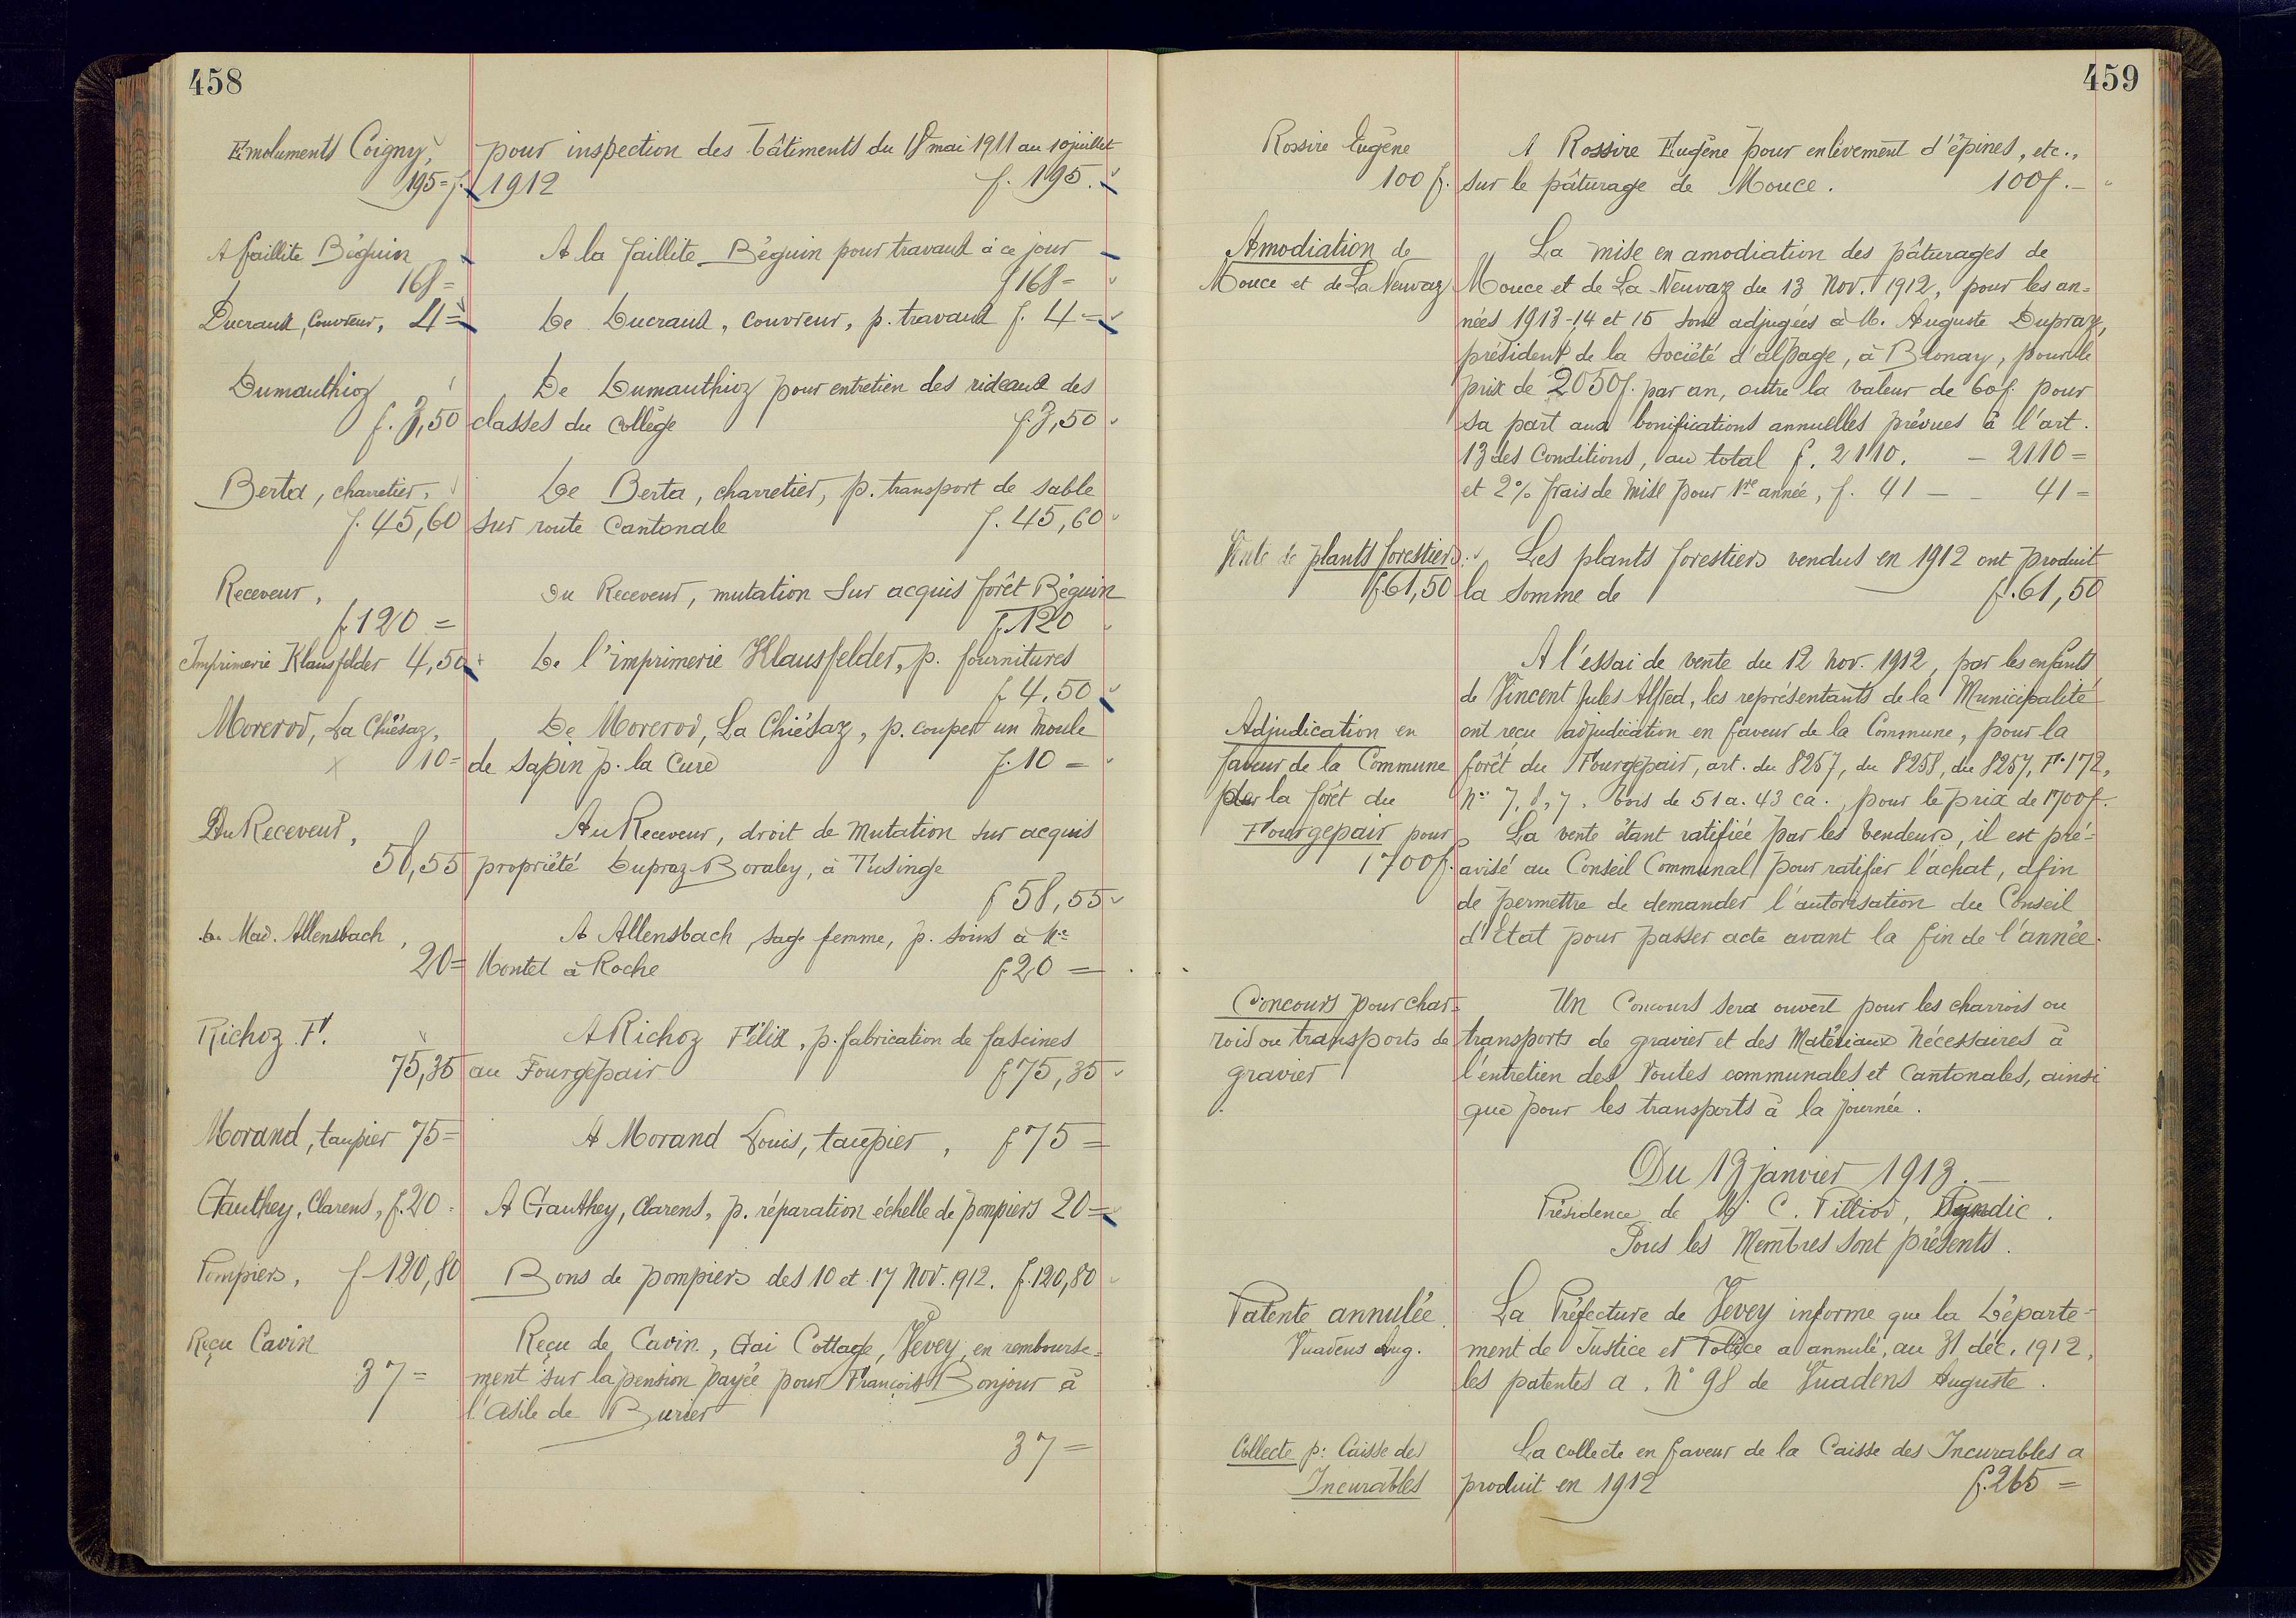 458
Emoluments Coigny,
195 = f.
pour inspection des bâtiments du 18 mai 1911 au 10 juillet
1912 f. 195.
A faillite Béguin
168 =
A la faillite Béguin pour travaux à ce jour
f 168 =
Ducraux, couvreur, 4 =
De Ducraux, couvreur, p. travaux f. 4 =
Dumauthioz
f. 3,50
De Dumauthioz pour entretien des rideaux des
classes du collège f. 3,50
Berta, charretier,
f. 45,60
De Berta, charretier, p. transport de sable
sur route Cantonale f. 45,60
Receveur,
f 120 =
Du Receveur, mutation sur acquis forêt Béguin
f. 120
Imprimerie Klausfelder 4,50
De l'imprimerie Klausfelder, p. fournitures
f 4,50
Morerod, La Chiésaz,
10 =
De Morerod, La Chiésaz, p. couper un moule
de sapin p. la Cure f. 10 =
Au Receveur,
58,55
Au Receveur, droit de mutation sur acquis
propriété Dupraz-Boraley, à Tusinge
f 58,55
De Mad. Allensbach,
20 =
A Allensbach, sage femme, p. soins à Me
Montet à Roche f 20 =
Richoz F.
75,35
A Richoz Félix, p. fabrication de fascines
au Fourgepair f 75,35
Morand, taupier 75 =
A Morand Louis, taupier, f 75 =
Gauthey, Clarens, f. 20
A Gauthey, Clarens, p. réparation échelle de pompiers 20 =
Pompiers, f 120,80
Bons de pompiers des 10 et 17 Nov. 1912. f. 120,80
Reçu Cavin
37 =
Reçu de Cavin, Gai Cottage, Vevey, en rembourse-
ment sur la pension payée pour François Bonjour à
l'Asile de Burier
37 =
459
Rossire Eugène
100 f.
A Rossire Eugène pour enlèvement d'épines, etc.,
sur le pâturage de Mouce. 100 f.
Amodiation de
Mouce et de La Neuvaz
La mise en amodiation des pâturages de
Mouce et de La Neuvaz du 13 Nov. 1912, pour les an-
nées 1913-14 et 15 sont adjugées à M. Auguste Dupraz,
président de la Société d'alpage, à Blonay, pour le
prix de 2050 f. par an, outre la valeur de 60 f. pour
sa part aux bonifications annuelles prévues à l'art.
13 des Conditions, au total f. 2110. - 2110 =
et 2% frais de mise pour 1re année, f. 41 - - 41 =
Vente de plants forestiers.
f 61,50
Les plants forestiers vendus en 1912 ont produit
la somme de f. 61,50
A l'essai de vente du 12 Nov. 1912, par les enfants
de Vincent Jules Alfred, les représentants de la Municipalité
Adjudication en
faveur de la Commune
de la forêt du
Fourgepair pour
1700 f.
ont reçu adjudication en faveur de la Commune, pour la
forêt du Fourgepair, art. du 8257, du 8258, du 8257, F. 172,
Nos 7, 8, 7, bois de 51 a. 43 ca., pour le prix de 1700 f.
La vente étant ratifiée par les vendeurs, il est pré-
avisé au Conseil Communal pour ratifier l'achat, afin
de permettre de demander l'autorisation du Conseil
d'Etat pour passer acte avant la fin de l'année.
Concours pour char-
rois ou transports de
gravier
Un Concours sera ouvert pour les charrois ou
transports de gravier et des Matériaux nécessaires à
l'entretien des routes communales et cantonales, ainsi
que pour les transports à la journée.
Du 13 janvier 1913.
Présidence de M. C. Pilliod, Syndic.
Tous les Membres sont présents.
Patente annulée.
Vuadens Aug.
La Préfecture de Vevey informe que la Départe-
ment de Justice et Police a annulé, au 31 déc. 1912,
les patentes a. N° 98 de Vuadens Auguste.
Collecte p: Caisse des
Incurables
La collecte en faveur de la Caisse des Incurables a
produit en 1912 f. 265 =